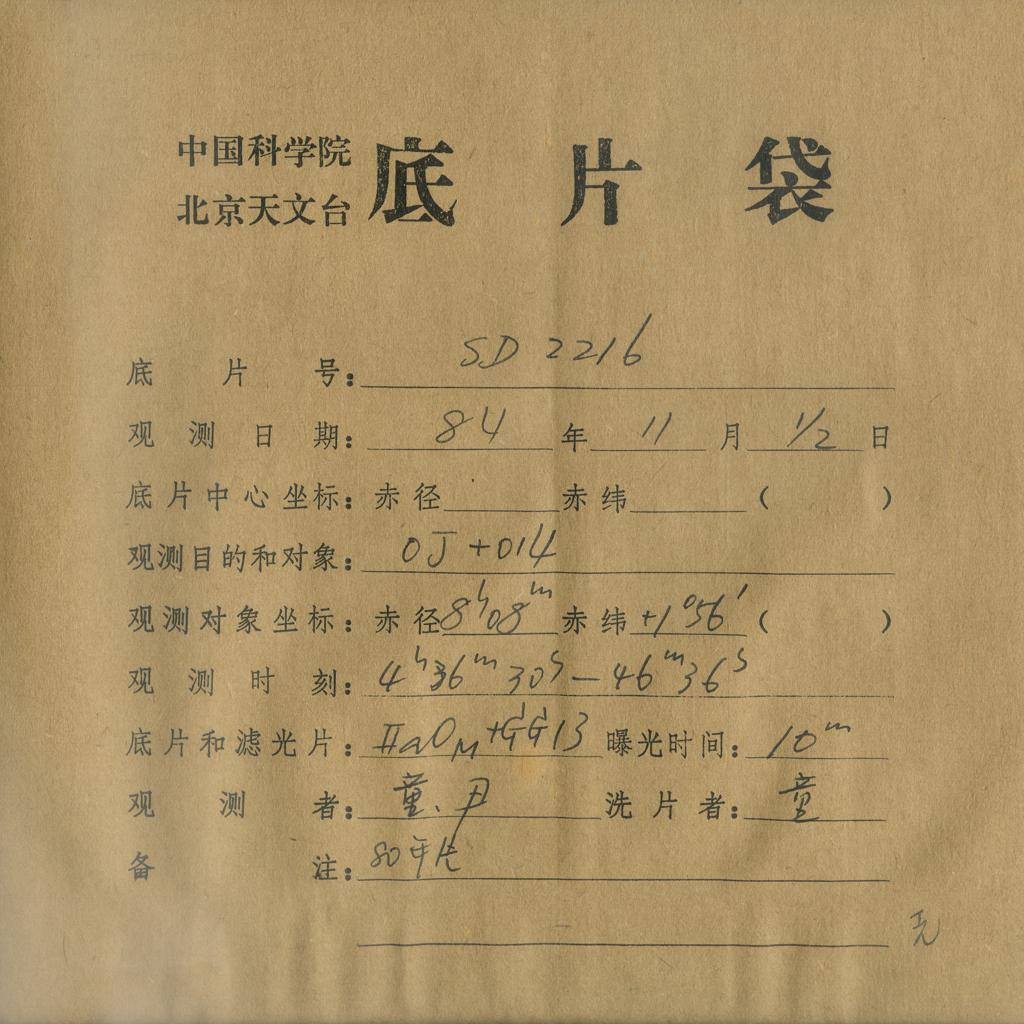 中国科学院
北京天文台
底片袋
底片号：SD 2216
观测日期：84年11月1/2日
底片中心坐标：赤径 赤纬 （ ）
观测目的和对象：OJ+014
观测对象坐标：赤径8h08m赤纬+1°56′（ ）
观测时刻：4h36m30s—46m36s
底片和滤光片：IIaOM+GG13 曝光时间：10m
观测者：童、尹 洗片者：童
备注：80年片